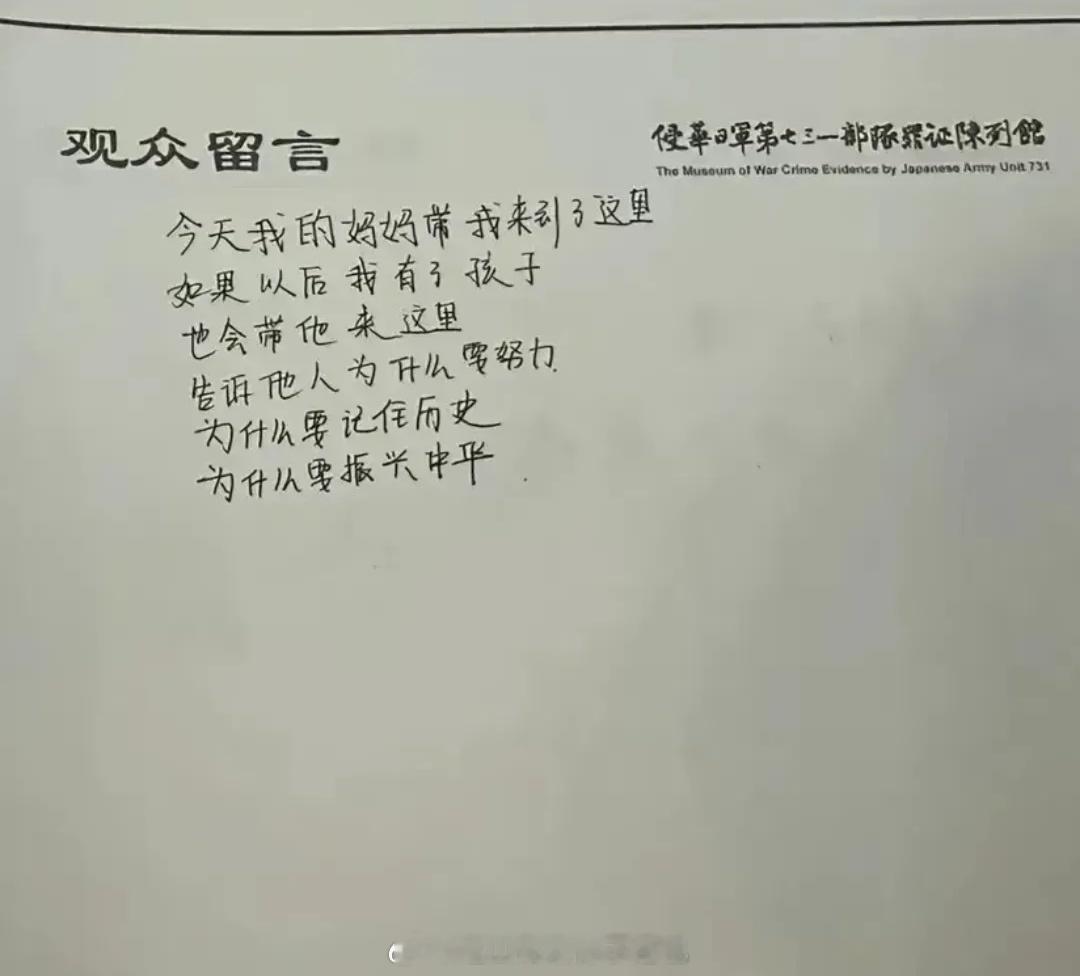 观众留言
侵華日軍第七三一部隊罪证陳列館
The Museum of War Crime Evidence by Japanese Army Unit 731
今天我的妈妈带我来到了这里
如果以后我有了孩子
也会带他来这里
告诉他人为什么要努力
为什么要记住历史
为什么要振兴中华